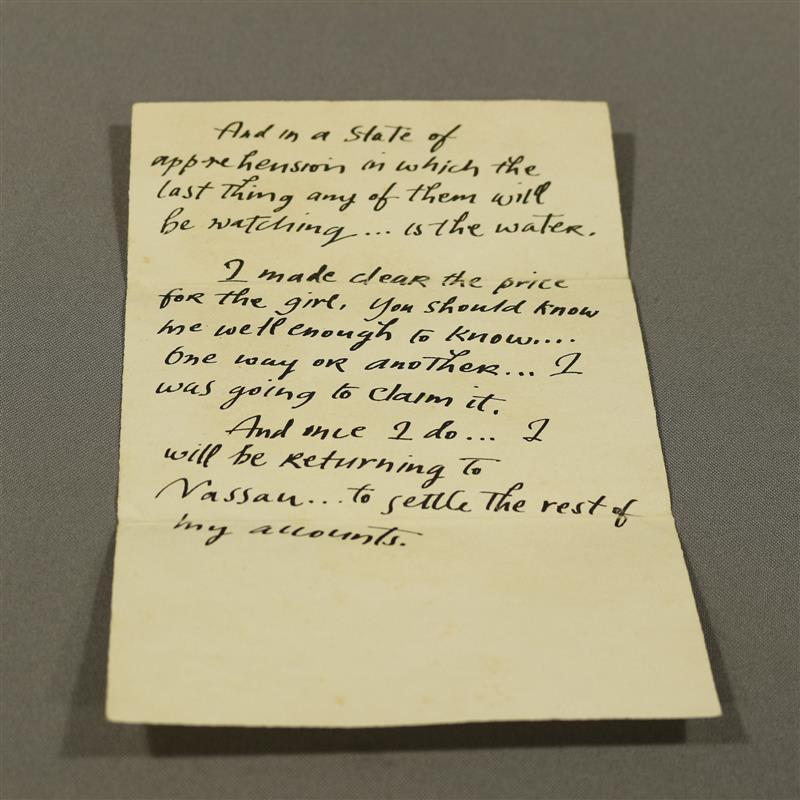 And in a state of
apprehension in which the
last thing any of them will
be watching... is the water.
I made clear the price
for the girl. You should know
me well enough to know....
One way or another... I
was going to claim it.
And once I do... I
will be returning to
Nassau... to settle the rest of
my accounts.